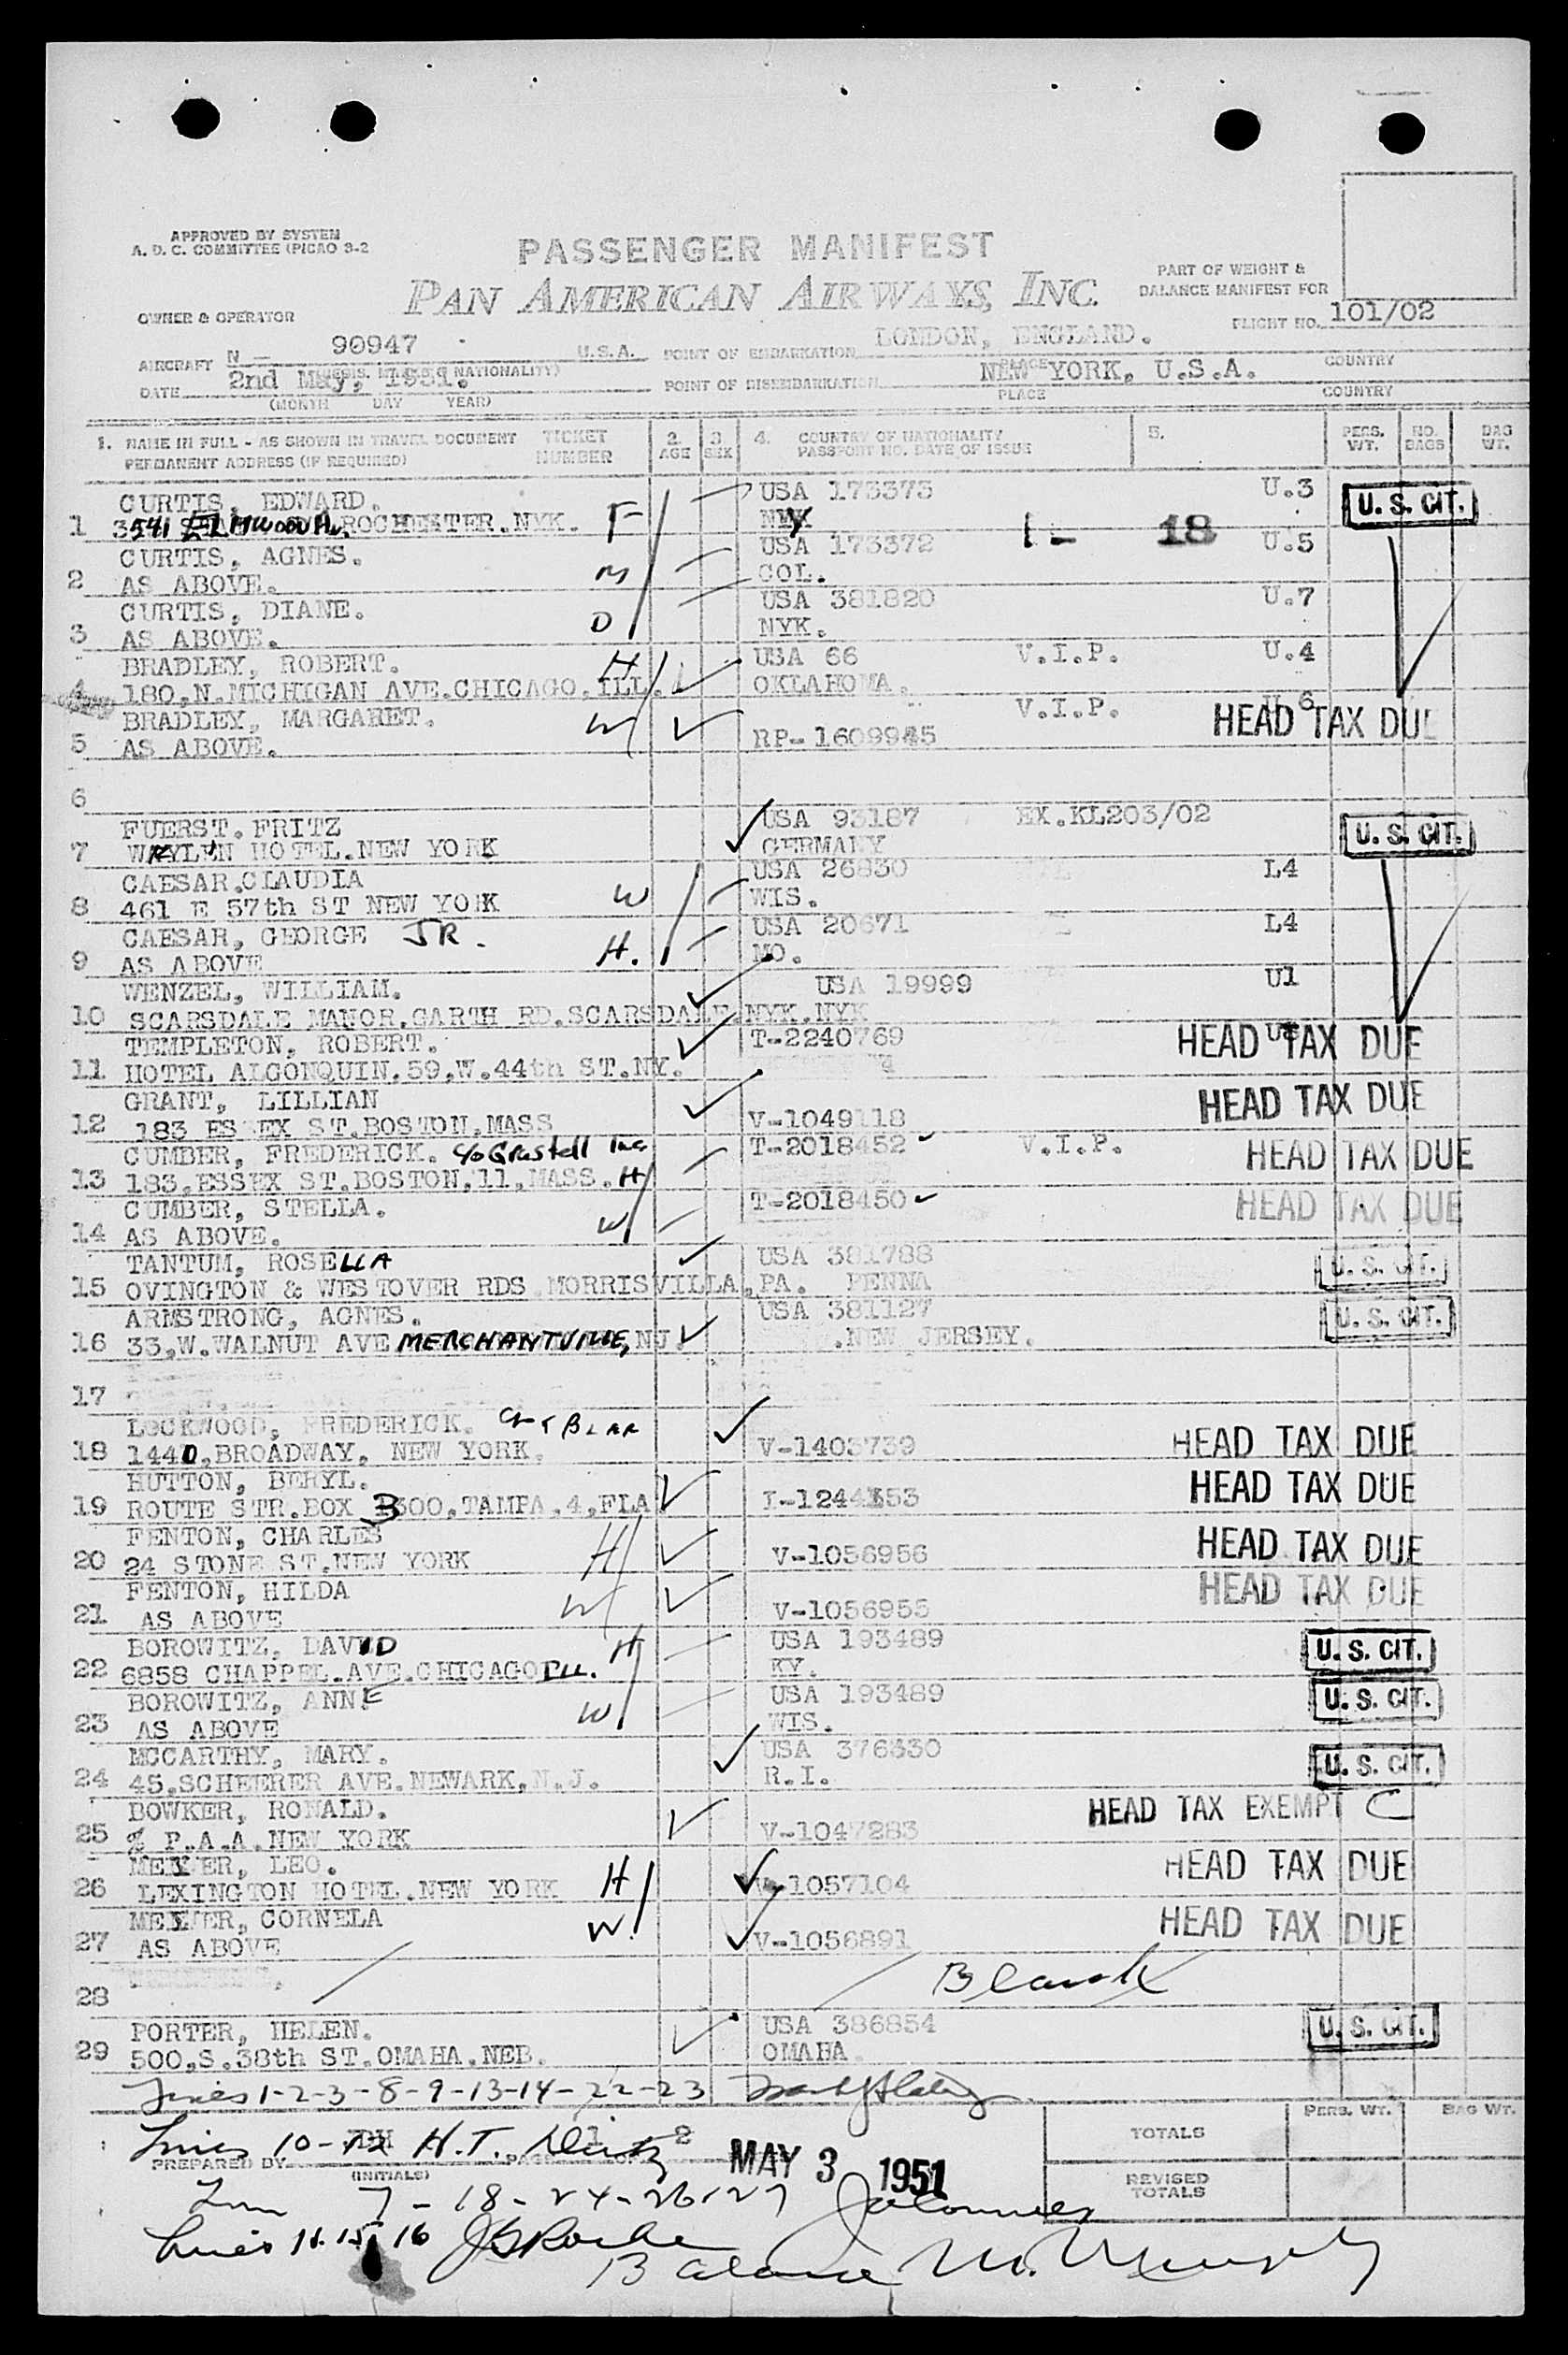 APPROVED BY SYSTEM
A. D. C. COMMITTEE (PICAO 3-2
PASSENGER MANIFEST
PAN AMERICAN AIRWAYS, INC.
PART OF WEIGHT &
BALANCE MANIFEST FOR
OWNER & OPERATOR
FLIGHT NO. 101/02
AIRCRAFT N - 90947 U.S.A. POINT OF EMBARKATION LONDON, ENGLAND.
NATIONALITY) PLACE COUNTRY
DATE 2nd May, 1951. POINT OF DISEMBARKATION NEW YORK, U.S.A.
(MONTH DAY YEAR) PLACE COUNTRY
1. NAME IN FULL - AS SHOWN IN TRAVEL DOCUMENT TICKET 2. 3. 4. COUNTRY OF NATIONALITY 5. PERS. NO. BAG
PERMANENT ADDRESS (IF REQUIRED) NUMBER AGE SEX PASSPORT NO. DATE OF ISSUE WT. BAGS WT.
CURTIS, EDWARD. USA 173373 U.3 U. S. CIT.
1 3541 ELMWOOD AV. ROCHESTER.NYK. F NY 1- 18
CURTIS, AGNES. USA 173372 U.5
2 AS ABOVE. M COL.
CURTIS, DIANE. USA 381820 U.7
3 AS ABOVE. D NYK.
BRADLEY, ROBERT. H USA 66 V.I.P. U.4
4 180,N.MICHIGAN AVE.CHICAGO.ILL. OKLAHOMA.
BRADLEY, MARGARET. W V.I.P. U.6 HEAD TAX DUE
5 AS ABOVE. RP-1609945
6
FUERST.FRITZ USA 93187 EX.KL203/02 U. S. CIT.
7 HOTEL.NEW YORK GERMANY
CAESAR.CLAUDIA USA 26830 L4
8 461 E 57th ST NEW YORK W WIS.
CAESAR, GEORGE JR. USA 20671 L4
9 AS ABOVE H. MO.
WENZEL, WILLIAM. USA 19999 U1
10 SCARSDALE MANOR.GARTH RD.SCARSDALE.NYK.NYK
TEMPLETON, ROBERT. T-2240769 HEAD TAX DUE
11 HOTEL ALGONQUIN.59,W.44th ST.NY.
GRANT, LILLIAN HEAD TAX DUE
12 183 ESSEX ST.BOSTON,MASS V-1049118
CUMBER, FREDERICK. c/o Grastell Inc T-2018452 V.I.P. HEAD TAX DUE
13 183,ESSEX ST.BOSTON,11,MASS. H
CUMBER, STELLA. T-2018450 HEAD TAX DUE
14 AS ABOVE. W
TANTUM, ROSELLA USA 381788 U. S. CIT.
15 OVINGTON & WESTOVER RDS.MORRISVILLA,PA. PENNA
ARMSTRONG, AGNES. USA 381127 U. S. CIT.
16 33,W.WALNUT AVE MERCHANTVILLE, NJ. .NEW JERSEY.
17
LOCKWOOD, FREDERICK.
18 1440,BROADWAY, NEW YORK. V-1403739 HEAD TAX DUE
HUTTON, BERYL. HEAD TAX DUE
19 ROUTE STR.BOX 3300,TAMPA.4,FLA
FENTON, CHARLES HEAD TAX DUE
20 24 STONE ST.NEW YORK H V-1056956
FENTON, HILDA HEAD TAX DUE
21 AS ABOVE W V-1056955
BOROWITZ, DAVID H USA 193489 U. S. CIT.
22 6858 CHAPPEL.AVE.CHICAGO ILL. KY.
BOROWITZ, ANNE USA 193489 U. S. CIT.
23 AS ABOVE W WIS.
MCCARTHY, MARY. USA 376330 U. S. CIT.
24 45.SCHEERER AVE.NEWARK,N.J. R.I.
BOWKER, RONALD. HEAD TAX EXEMPT C
25 % P.A.A.NEW YORK V-1047283
LEO. HEAD TAX DUE
26 LEXINGTON HOTEL.NEW YORK H 1057104
CORNELA HEAD TAX DUE
27 AS ABOVE W. V-1056891
28 Blank
PORTER, HELEN. USA 386854 U. S. CIT.
29 500,S.38th ST.OMAHA.NEB. OMAHA.
Lines 1-2-3-8-9-13-14-22-23
Lines 10-12 H.T. TOTALS PERS. WT. BAG WT.
PREPARED BY PAGE 1 2 MAY 3 1951
(INITIALS) REVISED TOTALS
7-18-24-26-27
Lines 11.15 16
Balance M. Murphy